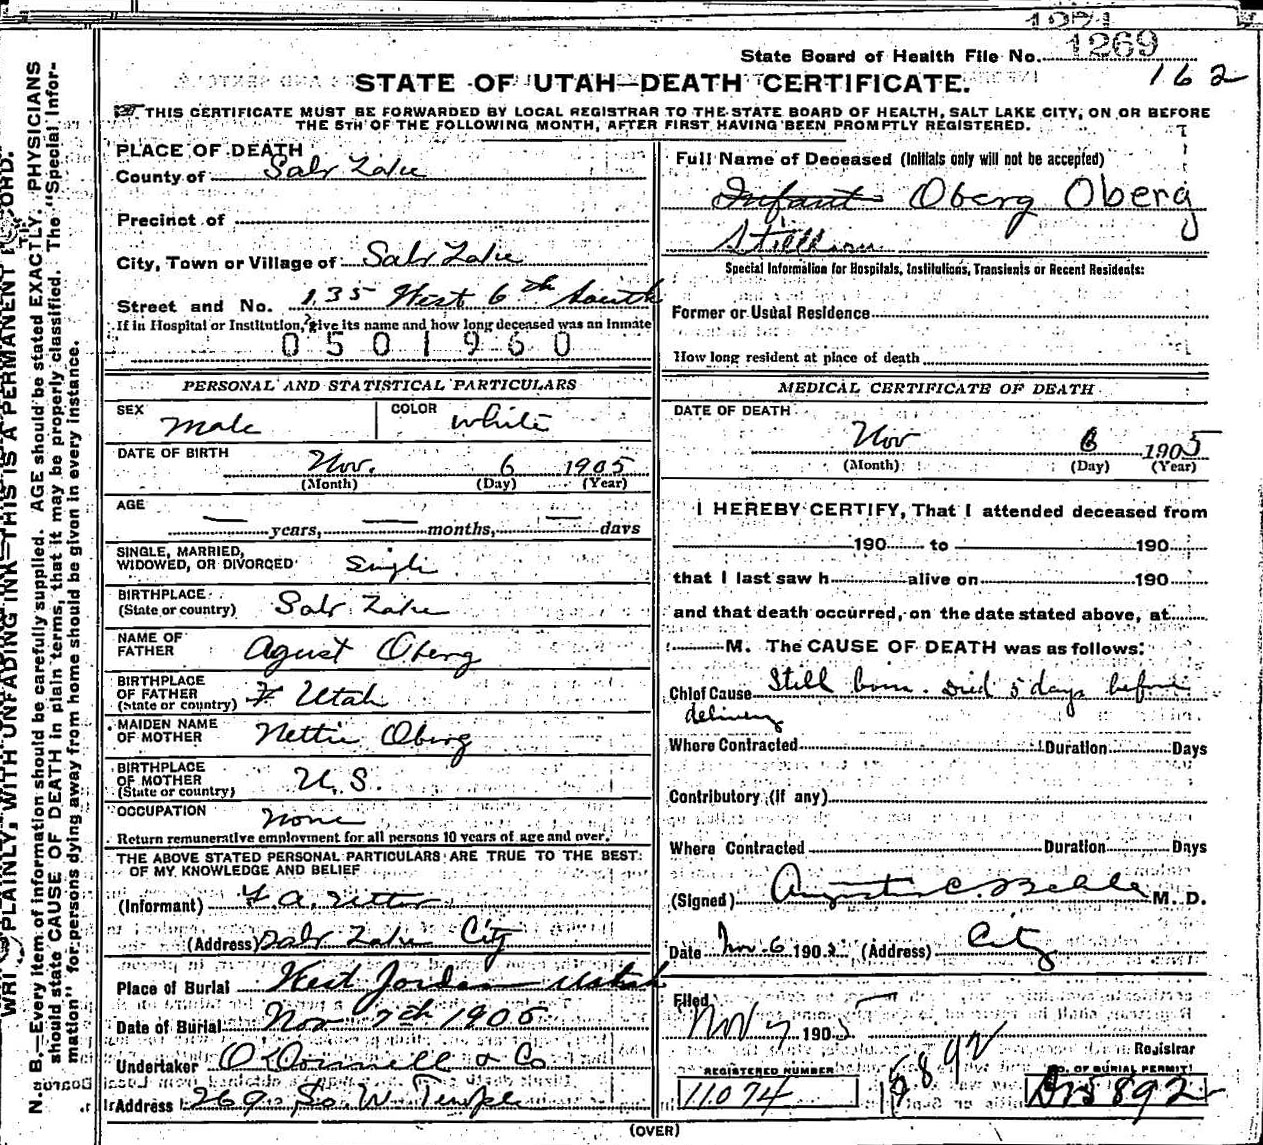 1269
State Board of Health File No.
162
STATE OF UTAH—DEATH CERTIFICATE.
THIS CERTIFICATE MUST BE FORWARDED BY LOCAL REGISTRAR TO THE STATE BOARD OF HEALTH, SALT LAKE CITY, ON OR BEFORE
THE 5TH OF THE FOLLOWING MONTH, AFTER FIRST HAVING BEEN PROMPTLY REGISTERED.
PLAINLY, WITH UNFADING INK—THIS IS A PERMANENT
N. B.—Every item of information should be carefully supplied. AGE should be stated EXACTLY. PHYSICIANS
should state CAUSE OF DEATH in plain terms, that it may be properly classified. The "Special Infor-
mation" for persons dying away from home should be given in every instance.
PLACE OF DEATH
County of Salt Lake
Precinct of
City, Town or Village of Salt Lake
Street and No. 135 West 6th South
If in Hospital or Institution, give its name and how long deceased was an Inmate
0501960
PERSONAL AND STATISTICAL PARTICULARS
SEX Male COLOR White
DATE OF BIRTH Nov. 6 1905
(Month) (Day) (Year)
AGE — years, — months, — days
SINGLE, MARRIED,
WIDOWED, OR DIVORCED Single
BIRTHPLACE
(State or country) Salt Lake
NAME OF
FATHER Agust Oberg
BIRTHPLACE
OF FATHER
(State or country) Utah
MAIDEN NAME
OF MOTHER Nettie Oberg
BIRTHPLACE
OF MOTHER
(State or country) U.S.
OCCUPATION None
Return remunerative employment for all persons 10 years of age and over.
THE ABOVE STATED PERSONAL PARTICULARS ARE TRUE TO THE BEST
OF MY KNOWLEDGE AND BELIEF
(Informant)
(Address) Salt Lake City
Place of Burial West Jordan Utah
Date of Burial Nov 7th 1905
Undertaker O'Donnell & Co
Address 269 So. W Temple
Full Name of Deceased (Initials only will not be accepted)
Infant Oberg Oberg
Stillborn
Special Information for Hospitals, Institutions, Transients or Recent Residents:
Former or Usual Residence
How long resident at place of death
MEDICAL CERTIFICATE OF DEATH
DATE OF DEATH
Nov 6 1905
(Month) (Day) (Year)
I HEREBY CERTIFY, That I attended deceased from
190 to 190
that I last saw h alive on 190
and that death occurred, on the date stated above, at
M. The CAUSE OF DEATH was as follows:
Chief Cause Still born. Died 5 days before
delivery
Where Contracted Duration Days
Contributory (if any)
Where Contracted Duration Days
(Signed) M. D.
Date Nov-6 190 (Address) City
Filed
Nov 7 1905
Registrar
5892
REGISTERED NUMBER
11074
NO. OF BURIAL PERMIT
5892
(OVER)